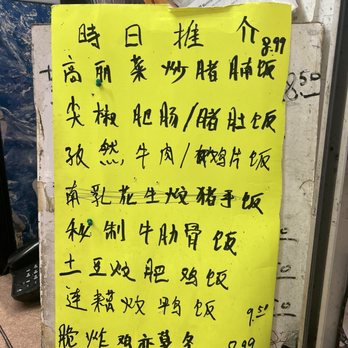 時日推介 8.99
高丽菜炒腊腩饭
尖椒肥肠/腊肚饭
孜然牛肉/鸡片饭
南乳花生炆猪手饭
秘制牛肋骨饭
土豆炆肥鸡饭
连藕炆鸭饭 9.50
脆炸鸡亦薯条 8.99
8.50